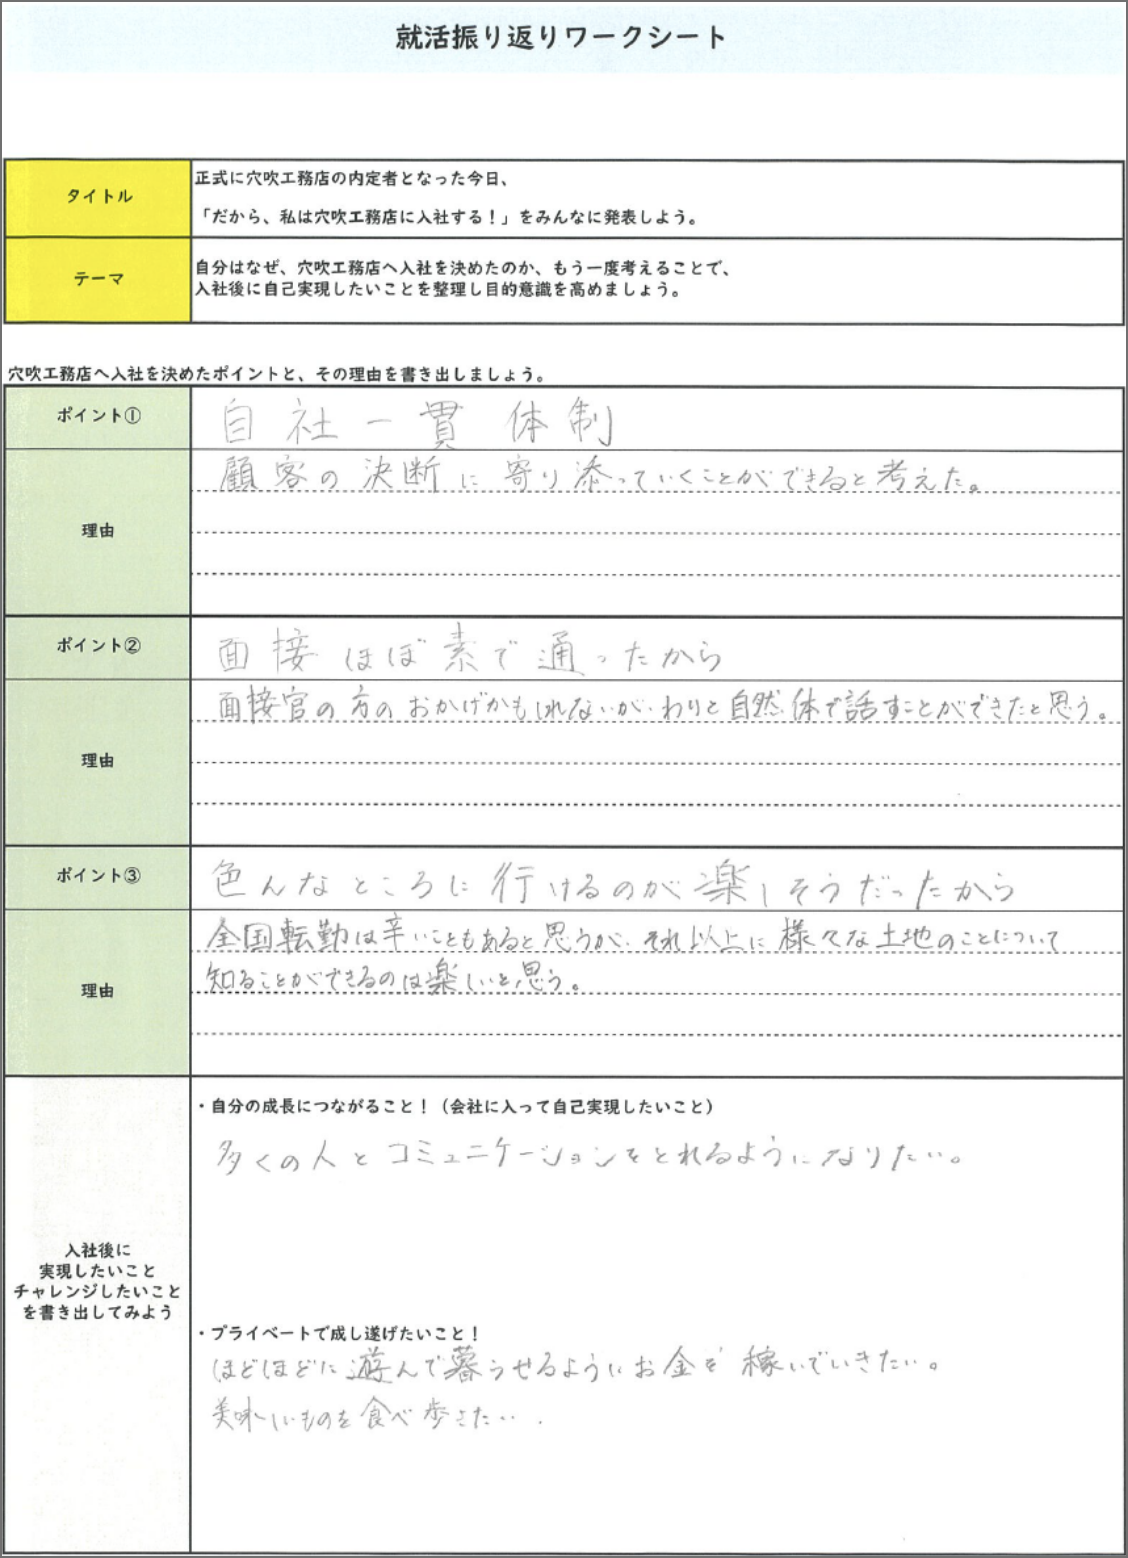 就活振り返りワークシート
タイトル
正式に穴吹工務店の内定者となった今日、
「だから、私は穴吹工務店に入社する！」をみんなに発表しよう。
テーマ
自分はなぜ、穴吹工務店へ入社を決めたのか、もう一度考えることで、
入社後に自己実現したいことを整理し目的意識を高めましょう。
穴吹工務店へ入社を決めたポイントと、その理由を書き出しましょう。
ポイント①
自社一貫体制
理由
顧客の決断に寄り添っていくことができると考えた。
ポイント②
面接ほぼ素で通ったから
理由
面接官の方のおかげかもしれないが、わりと自然体で話すことができたと思う。
ポイント③
色んなところに行けるのが楽しそうだったから
理由
全国転勤は辛いこともあると思うが、それ以上に様々な土地のことについて
知ることができるのは楽しいと思う。
入社後に
実現したいこと
チャレンジしたいこと
を書き出してみよう
・自分の成長につながること！（会社に入って自己実現したいこと）
多くの人とコミュニケーションをとれるようになりたい。
・プライベートで成し遂げたいこと！
ほどほどに遊んで暮らせるようにお金を稼いでいきたい。
美味しいものを食べ歩きたい.